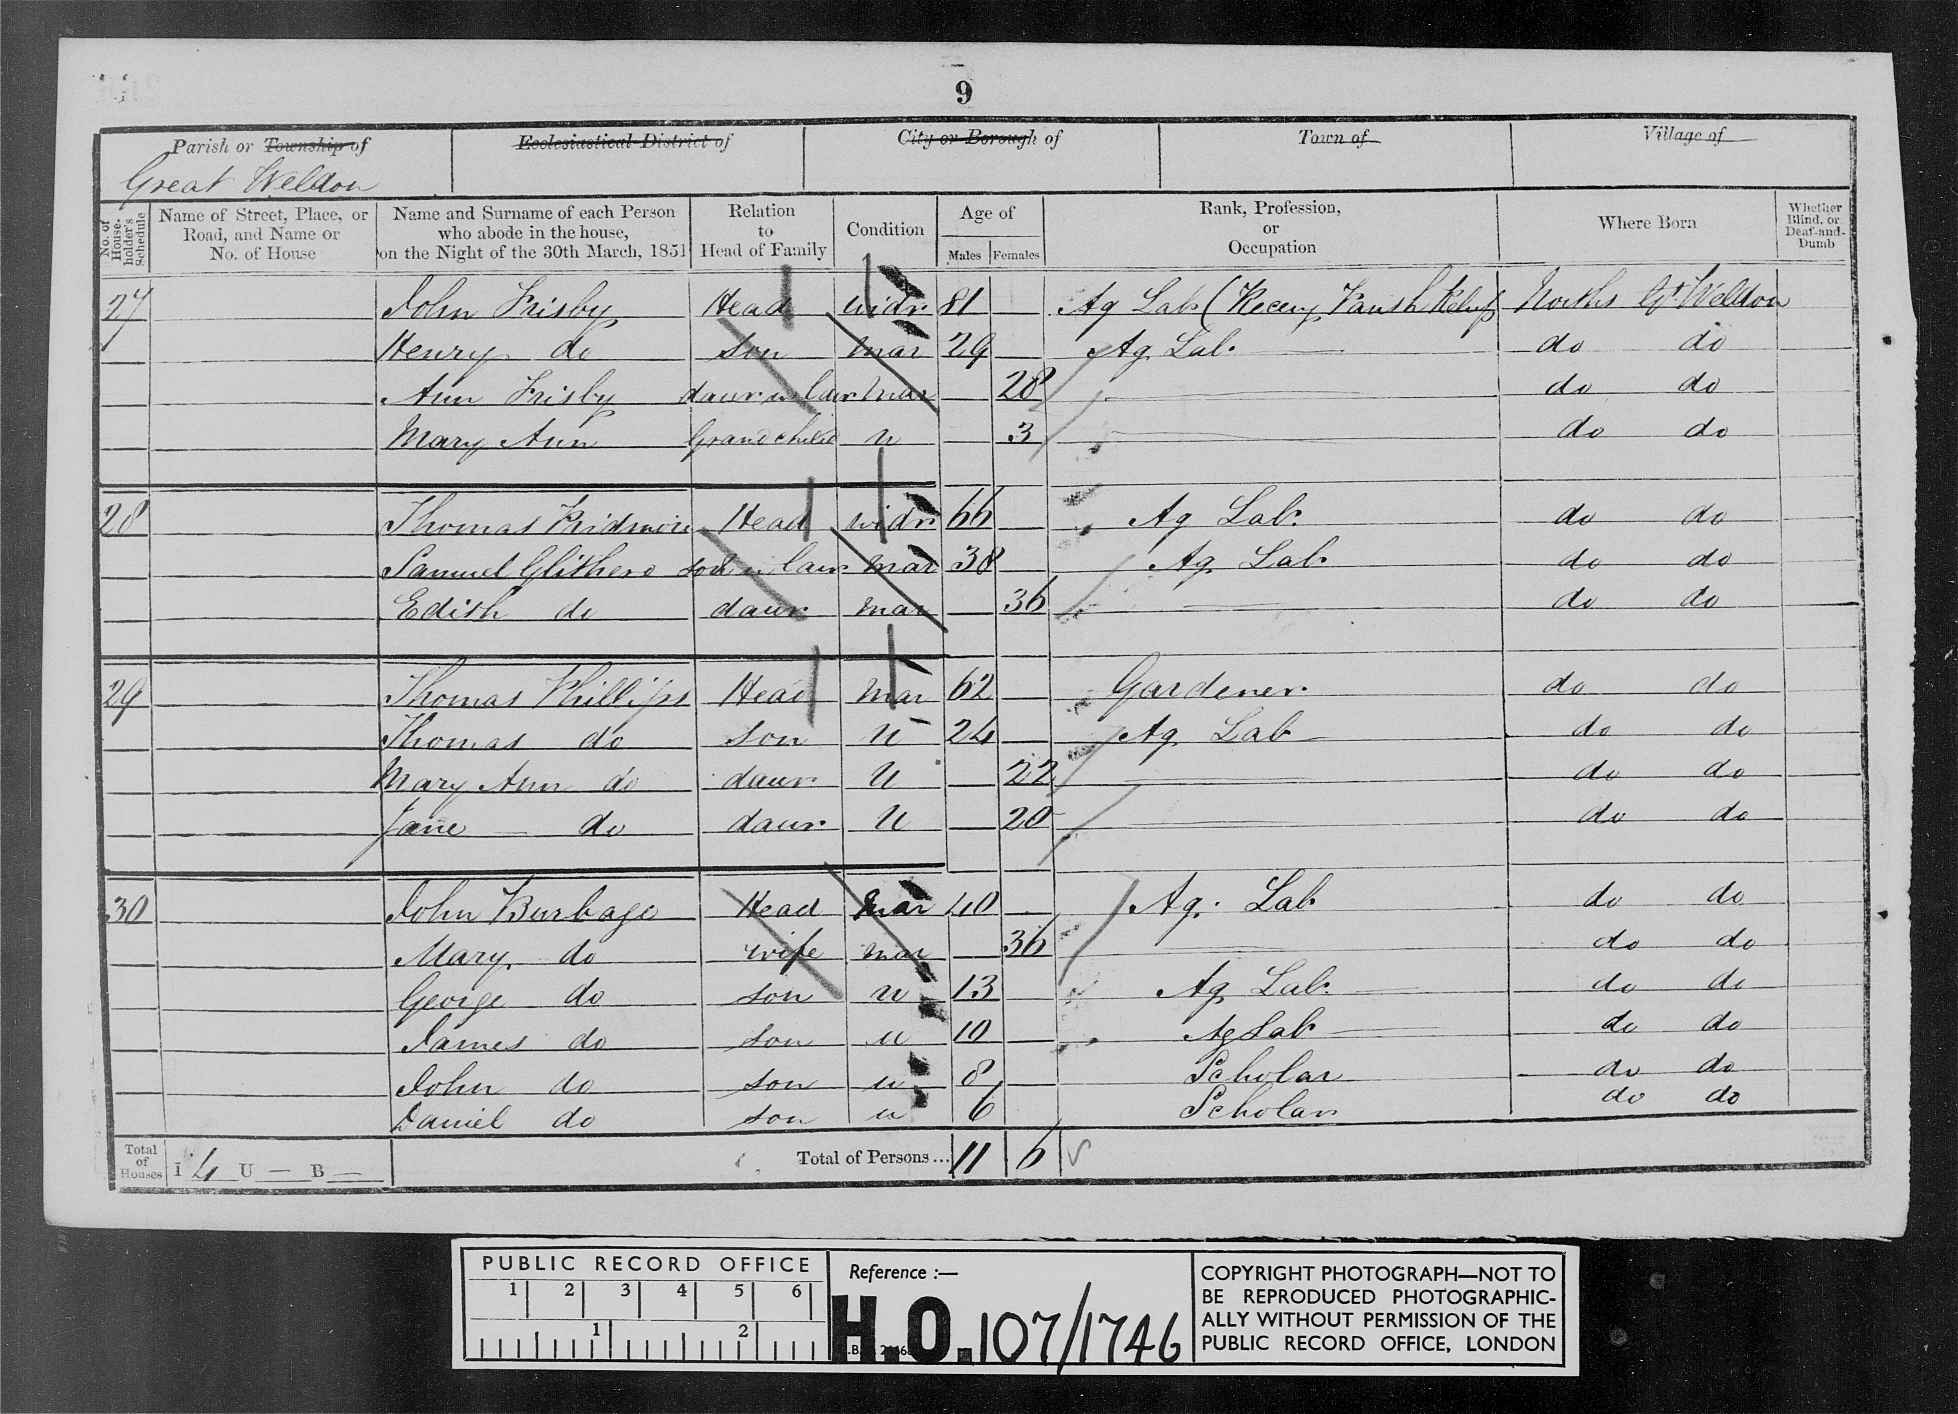 9
Parish or Township of Ecclesiastical District of City or Borough of Town of Village of
Great Weldon
No. of House-holder's Schedule Name of Street, Place, or Road, and Name or No. of House Name and Surname of each Person who abode in the house, on the Night of the 30th March, 1851 Relation to Head of Family Condition Age of Males Females Rank, Profession, or Occupation Where Born Whether Blind, or Deaf-and-Dumb
27 John Frisby Head widr 81 Ag Lab (Recevg Parish Relief) Norths Gt Weldon
Henry do son mar 29 Ag Lab. do do
Ann Frisby daur in law mar 28 do do
Mary Ann Grandchild u 3 do do
28 Thomas Pridmore Head widr 66 Ag Lab. do do
Samuel Glithero son in law mar 38 Ag Lab do do
Edish do daur mar 36 do do
29 Thomas Phillips Head mar 62 Gardener do do
Thomas do son U 24 Ag Lab do do
Mary Ann do daur U 22 do do
Jane do daur U 20 do do
30 John Burbage Head mar 40 Ag. Lab do do
Mary do wife mar 36 do do
George do son u 13 Ag Lab. do do
James do son u 10 Ag Lab do do
John do son u 8 Scholar do do
Daniel do son u 6 Scholar do do
Total of Houses I 4 U — B — Total of Persons... 11 6
PUBLIC RECORD OFFICE
1 2 3 4 5 6
1 2
Reference :—
H.O. 107/1746
COPYRIGHT PHOTOGRAPH—NOT TO
BE REPRODUCED PHOTOGRAPHIC-
ALLY WITHOUT PERMISSION OF THE
PUBLIC RECORD OFFICE, LONDON